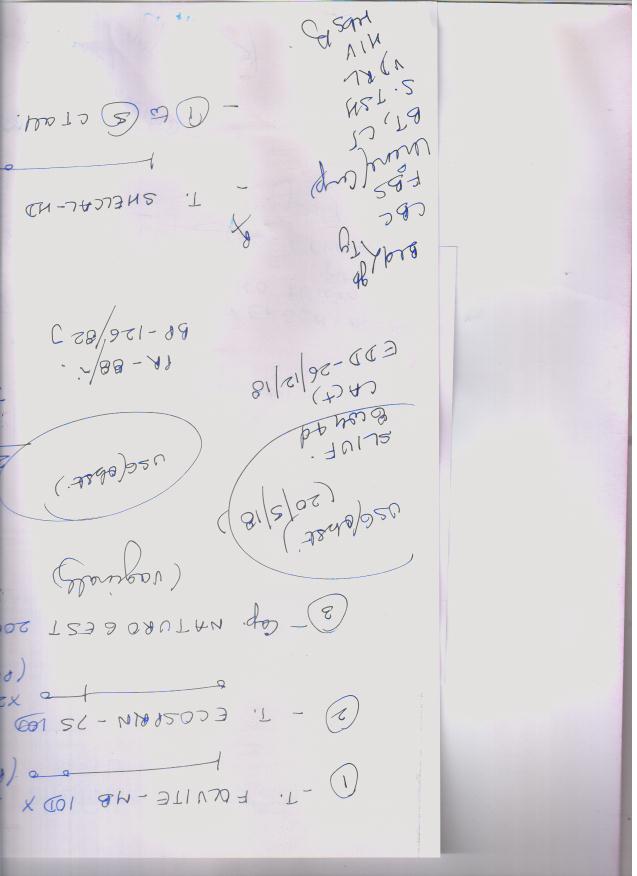 ① - T. FOLVITE-MB 10D X
② - T. ECOSPRIN-75 10D
③ - Cap. NATUROGEST 200
(vaginally)
USG(obst)
(20/5/18)
SLIUF
8w 4d
CA(+)
EDD-26/12/18
USG(obst)
PR-88/
BP-126/82
Bld/gp
Ty
CBC
FBS
Urine
BT, CT
S. TSH
VDRL
HIV
HbsAg
Rx
- T. SHELCAL-HD
- ① to ⑤ CT all.